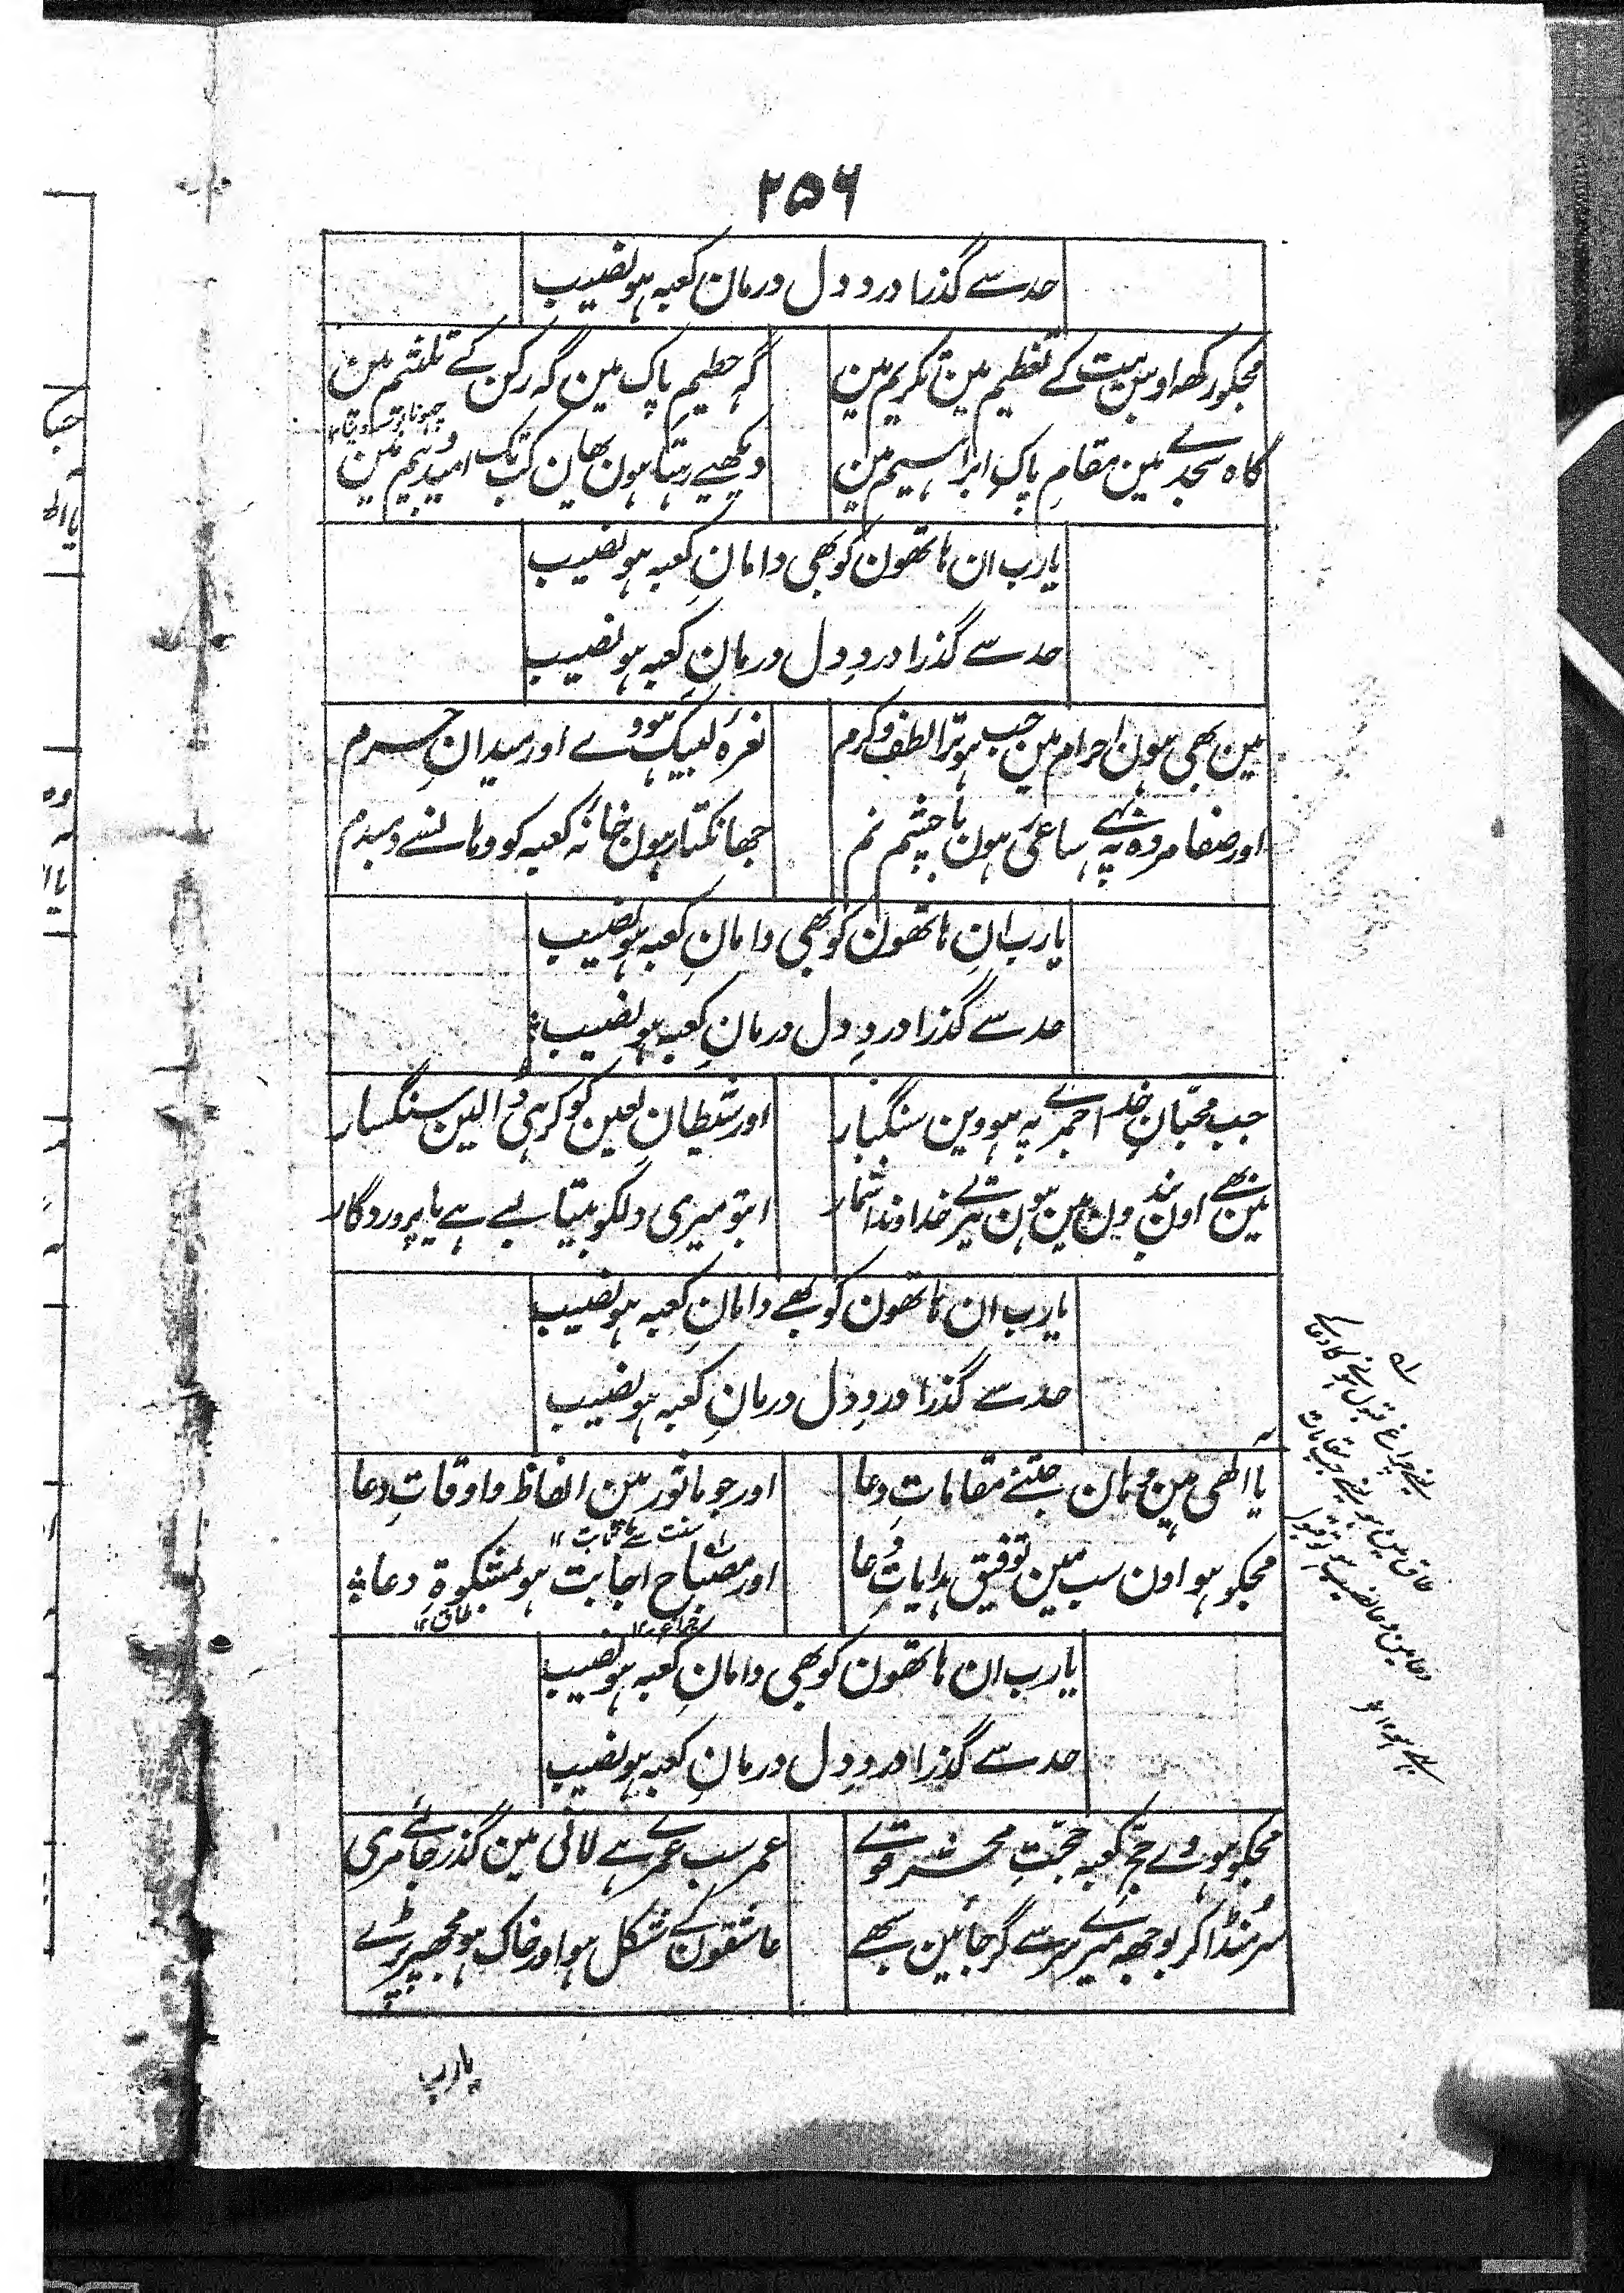 ۲۵۶
حد سے گذرا درد دل درمانِ کعبہ ہو نصیب
مجکو رکھ اوس بیت کے تعظیم مین تکریم مین
گہ حطیمِ پاک مین گہ رکن کے تلثیم مین
چھونا بوسہ دینا ۱۲
گاہ سجدے مین مقامِ پاکِ ابراہیم مین
دیکھیے رہتا ہون بھان کب تک امید و بیم مین
یارب ان ہاتھون کو بھی دامانِ کعبہ ہو نصیب
حد سے گذرا دردِ دل درمانِ کعبہ ہو نصیب
مین بھی ہون احرام مین جب ہو ترا لطف و کرم
نعرۂ لبیک ہووے اور میدانِ حرم
اور صفا مروہ پہ ساعی ہون با چشم نم
جھانکتا ہون خانۂ کعبہ کو وہانسے دمبدم
یارب ان ہاتھون کو بھی دامانِ کعبہ ہو نصیب
حد سے گذرا دردِ دل درمانِ کعبہ ہو نصیب
جب محبّانِ خدا جمرے پہ ہووین سنگبار
اور شیطان لعین کو کر ہی ڈالین سنگسار
مین بھے اون بندون مین ہون تیرے خداوندا شمار
ابتو میری دلکو بیتابے ہے یا پروردگار
یارب ان ہاتھون کو بھے دامانِ کعبہ ہو نصیب
حد سے گذرا دردِ دل درمانِ کعبہ ہو نصیب
یا الٰھی ہین وہان جتنے مقاماتِ دعا
اور جو ماثور ہین الفاظ و اوقاتِ دعا
سنت سے ثابت ۱۲
مجکو ہو اون سب مین توفیق ہدایاتِ دُعا
اور مصباحِ اجابت ہو لمشکوۃِ دعا
چراغ ۱۲
طاق ۱۲
یارب ان ہاتھون کو بھی دامانِ کعبہ ہو نصیب
حد سے گذرا دردِ دل درمانِ کعبہ ہو نصیب
مجکو ہووے حجِّ کعبہ حجّتِ محشر قوے
عمر سب عمرے ہے لانی مین گذر جائے مری
سر مُنڈا کر بوجھ میرے سر سے گر جائین بھے
عاشقون کے شکل ہو اور خاک ہو مجھپر پڑے
یارب